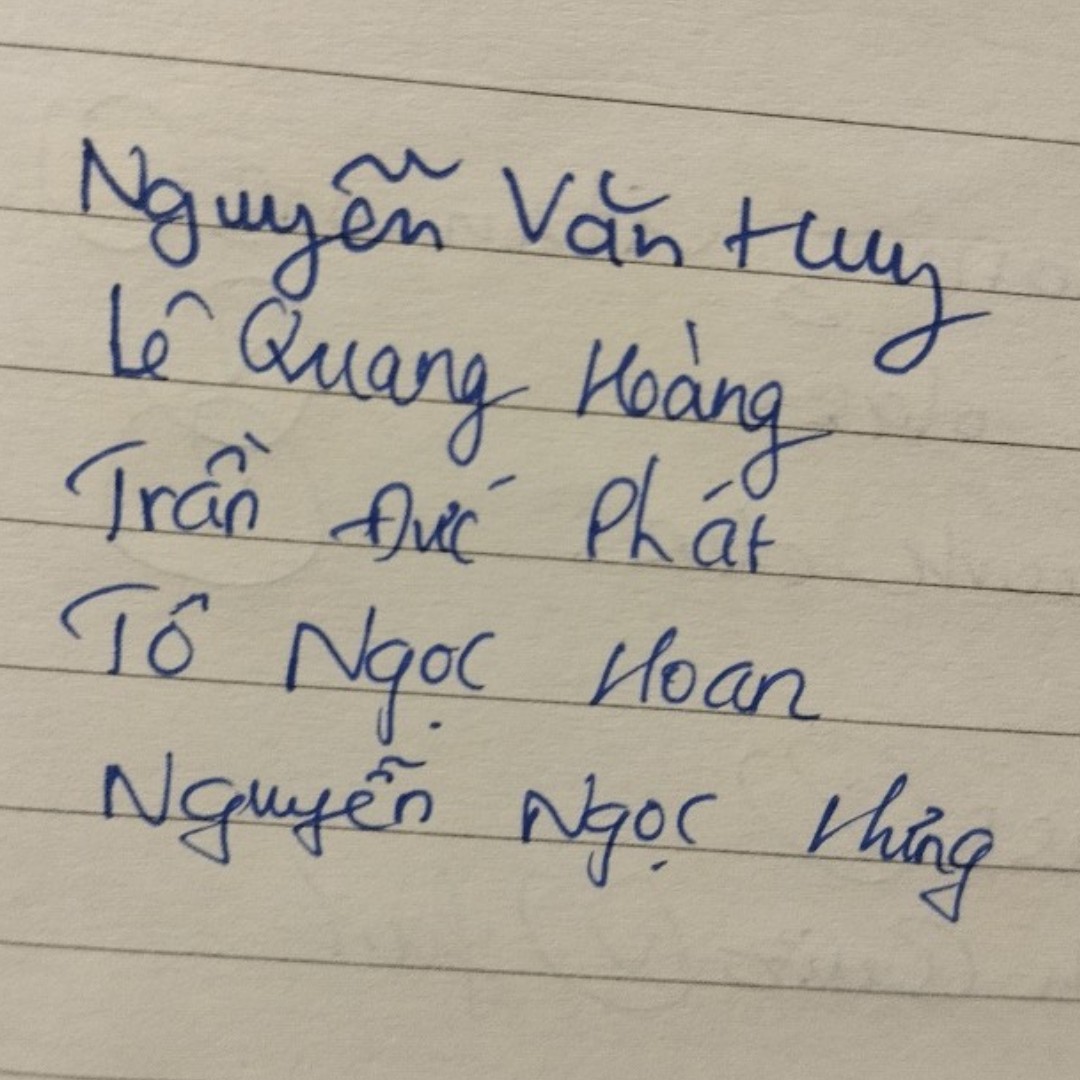 Nguyễn Văn Huy
Lê Quang Hoàng
Trần Đức Phát
Tô Ngọc Hoan
Nguyễn Ngọc